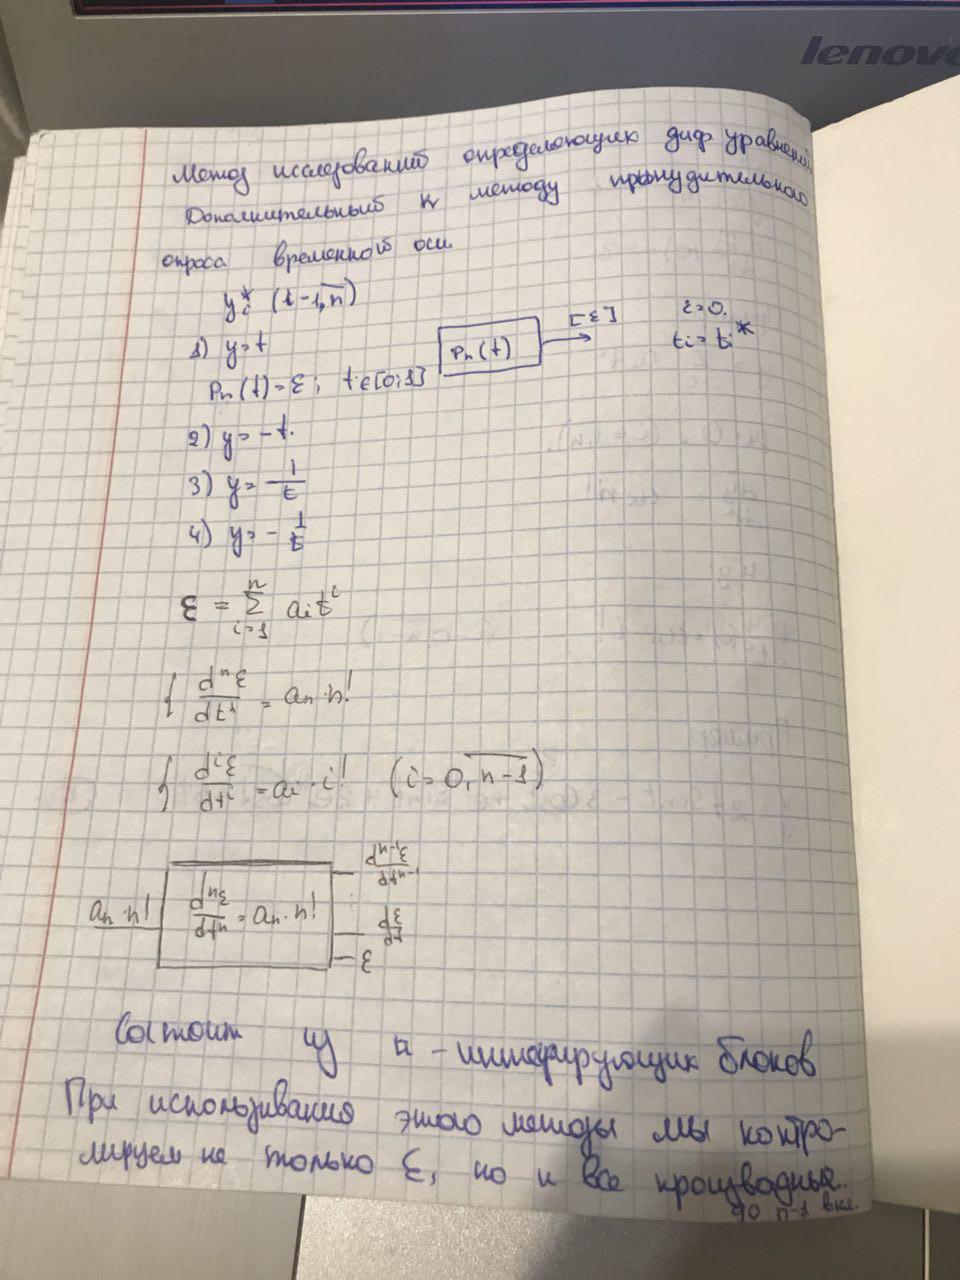 lenovo
Метод исследований определяющих диф уравнений
Дополнительный к методу принудительного
опроса временной оси
yᵢ* (1-1,n̅)
1) y=t
Pₙ(t)=ε; t∈[0;1]
Pₙ(t)
[ε]
ε=0.
tᵢ=tᵢ*
2) y=-t.
3) y=1/t
4) y=-1/t
ε = Σᵢ₌₁ⁿ aᵢtⁱ
{ dⁿε/dtⁿ = aₙ·n!
{ dⁱε/dtⁱ = aᵢ·i! (i=0,n-1)
aₙ·n!
dⁿε/dtⁿ = aₙ·n!
dⁿ⁻¹ε/dtⁿ⁻¹
dε/dt
ε
Состоит из n-интегрирующих блоков
При использовании этого методы мы контро-
лируем не только ε, но и все производные.
до n-1 вкл.